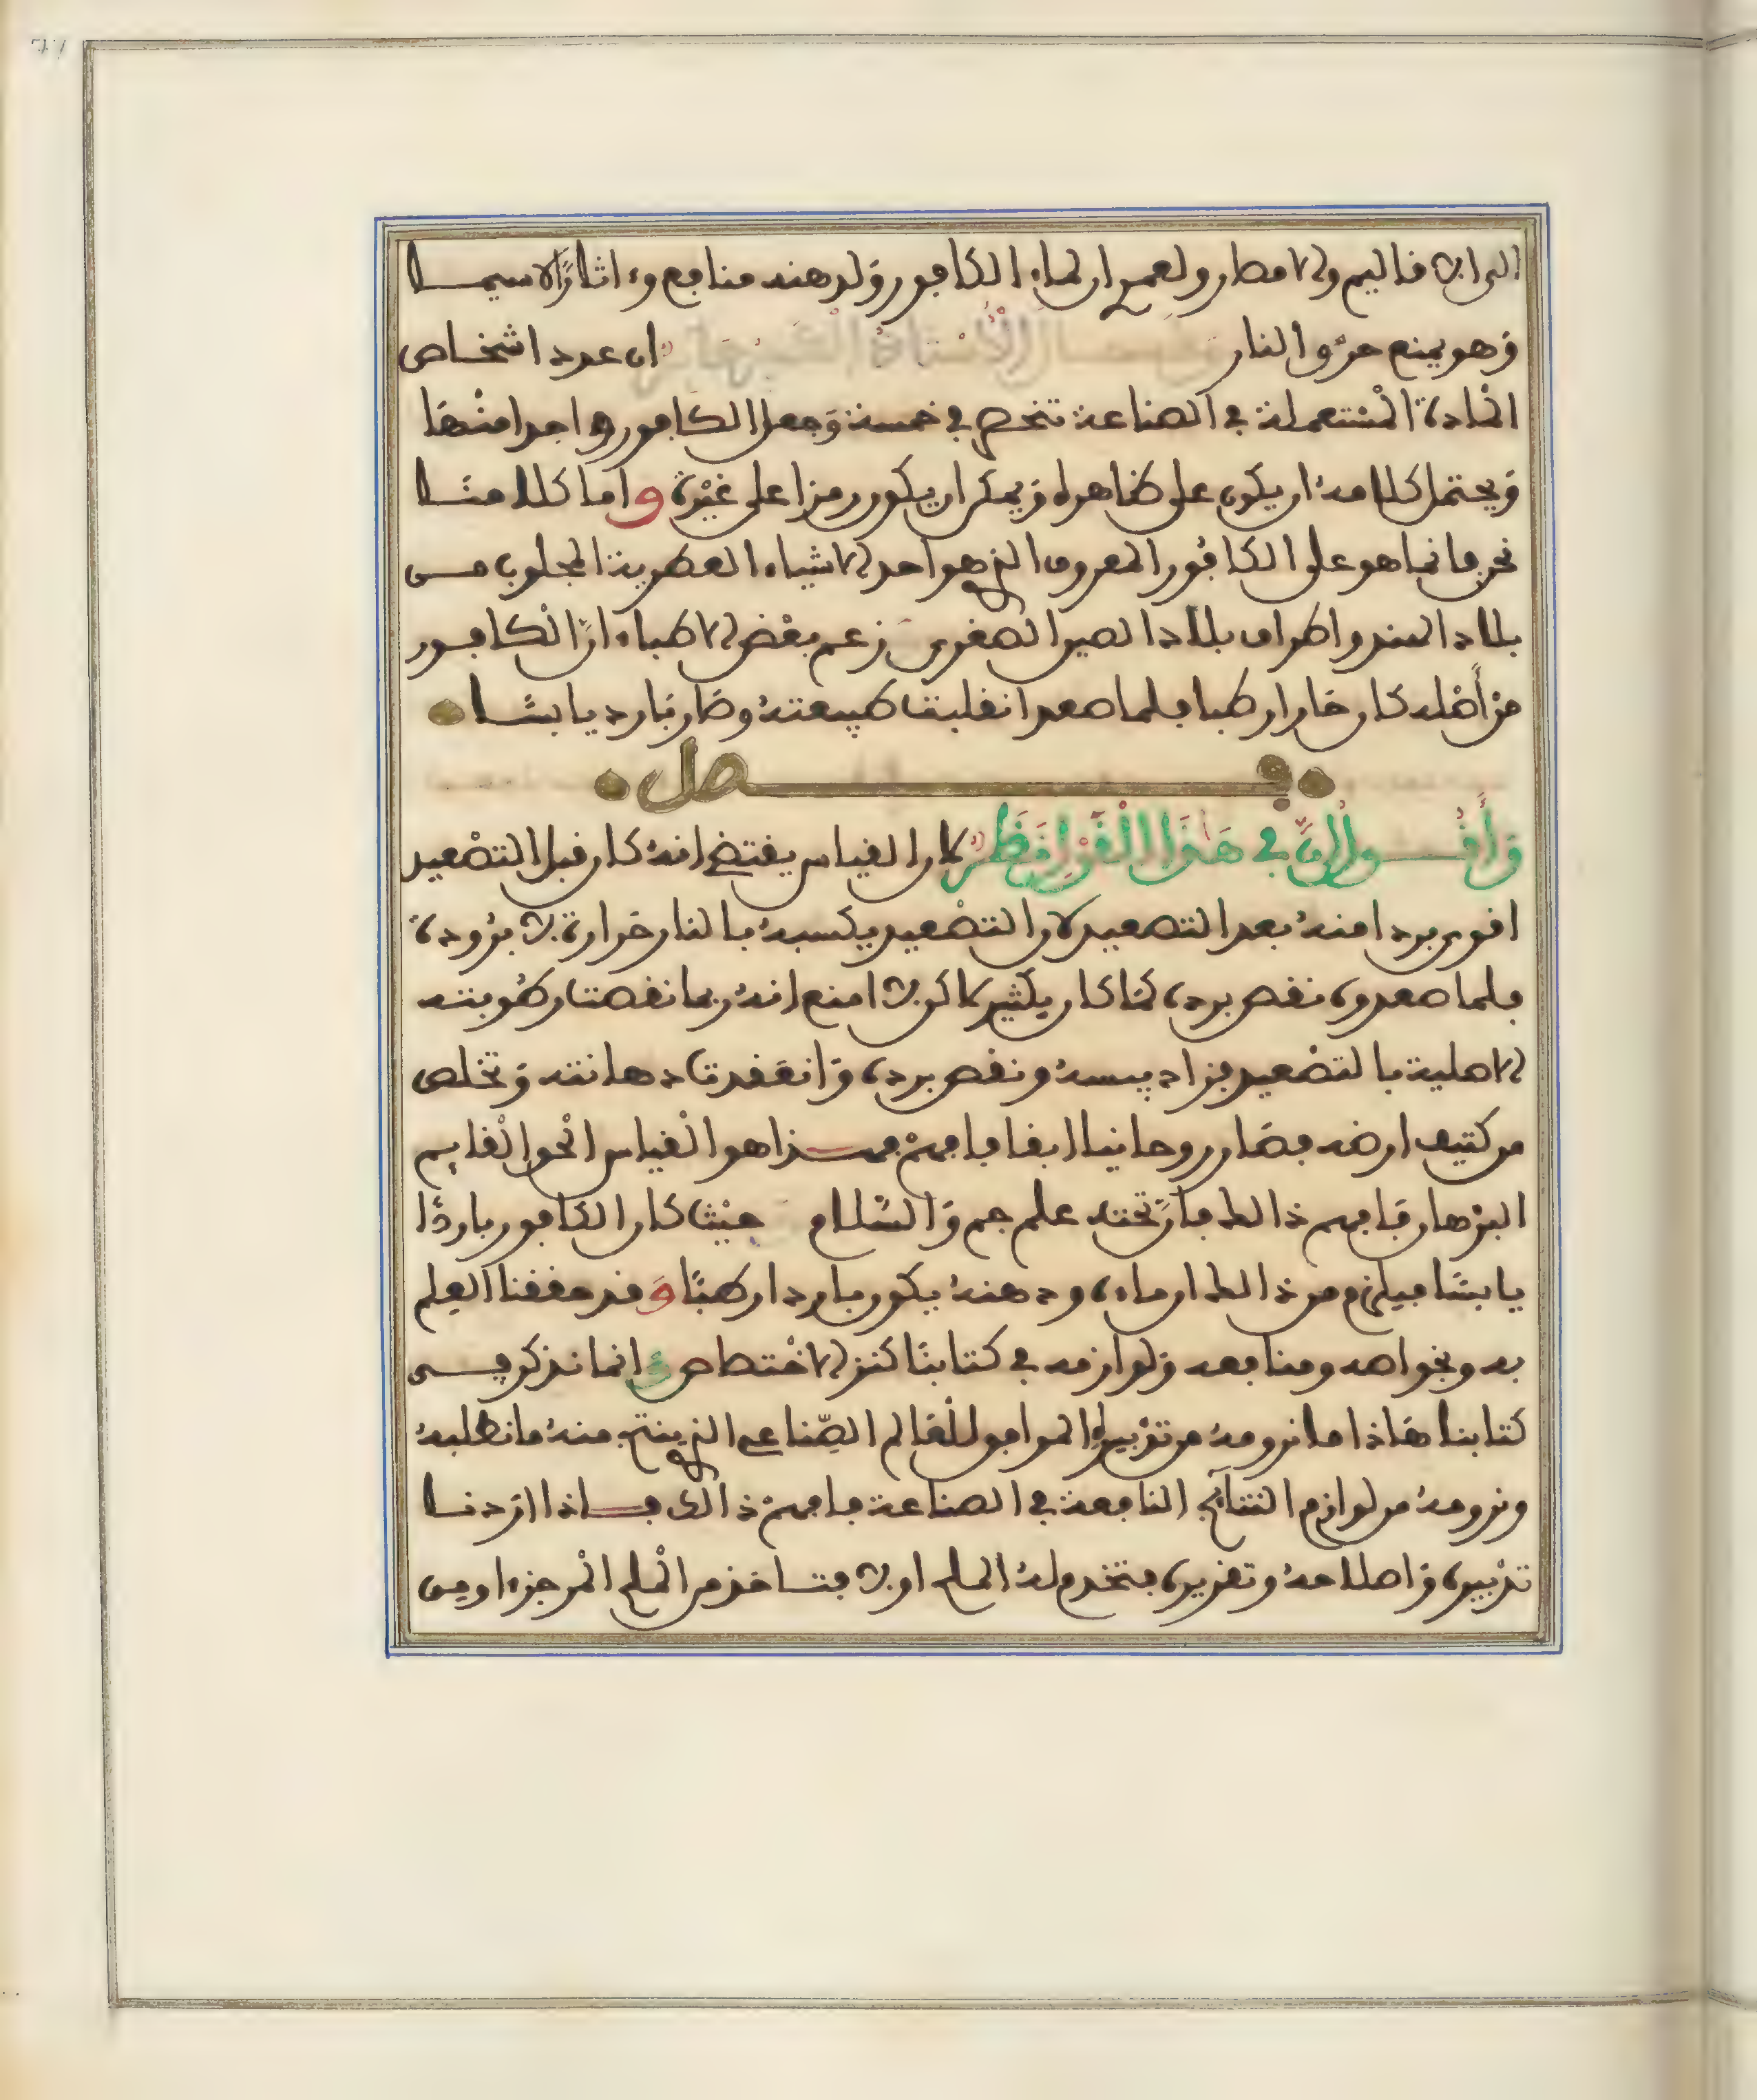 الى الاقاليم والامصار ولعمرى ان لماء الكافور ولدهنه منافع وءاثارًا لاسيما
وهو يمنع حرق النار ان عدد اشخاص
المادة المستعملة في الصناعة تنحصر في خمسة وجعل الكافور واحدا منها
ويحتمل كلامه ان يكون على ظاهره ويمكن ان يكون رمزا على غيره واما كلامنا
نحن فانما هو على الكافور المعروف الذي هو احد الاشياء العطرية المجلوب من
بلاد الهند واطراف بلاد الصين الصغرى زعم بعض الاطباء ان الكافور
من أصله كان حارا رطبا فلما صعد انقلبت طبيعته وصار باردا يابسًا
فصل
وأقول إنَّ في هذا القول نظر لان القياس يقتضي انه كان قبل التصعيد
اقوى بردا منه بعد التصعيد لان التصعيد يكسبه بالنار حرارة لا برودة
فلما صعدوه نقص برده كما كان يكثير لاكن لا امنع انه ربما نقصت رطوبته
الاصلية بالتصعيد فزاد يبسه ونقص برده وانعقدت دهانته وتخلص
من كثيف ارضه فصار روحانيا ابقا فافهم فهذا هو القياس الحق القايم
البرهان فافهم ذالك فان تحته علم جم والسلام حيث كان الكافور باردًا
يابسًا فيلزم من ذالك ان ماءه ودهنه يكون باردا رطبًا وقد حققنا العلم
به وبخواصه ومنافعه ولوازمه في كتابنا كنز الاختصاص وانما نذكر في
كتابنا هاذا ما نرومه من تدبيره الموافق للعالم الصناعي الذي ينتج منه ما نطلبه
ونرومه من لوازم النتائج النافعة في الصناعة فافهم ذالك فاذا اردنا
تدبيره واصلاحه وتقريره فتخدم له الملح اولا فتاخذ من الملح المر جزءا ومن